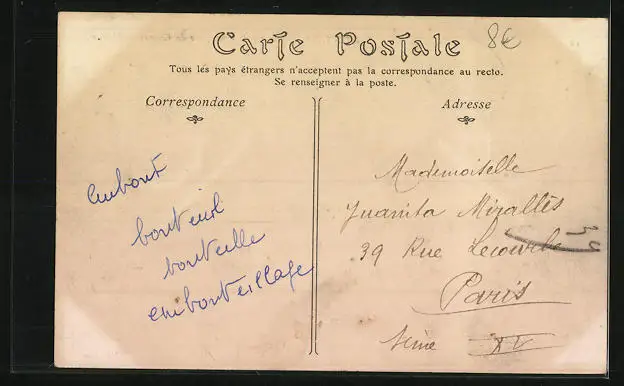 Carte Postale
8€
Tous les pays étrangers n'acceptent pas la correspondance au recto.
Se renseigner à la poste.
Correspondance
embout
bouteuil
bouteille
embouteillage
Adresse
Mademoiselle
Juanita Mirallès
39 Rue Lecourbe
Paris
Seine XV